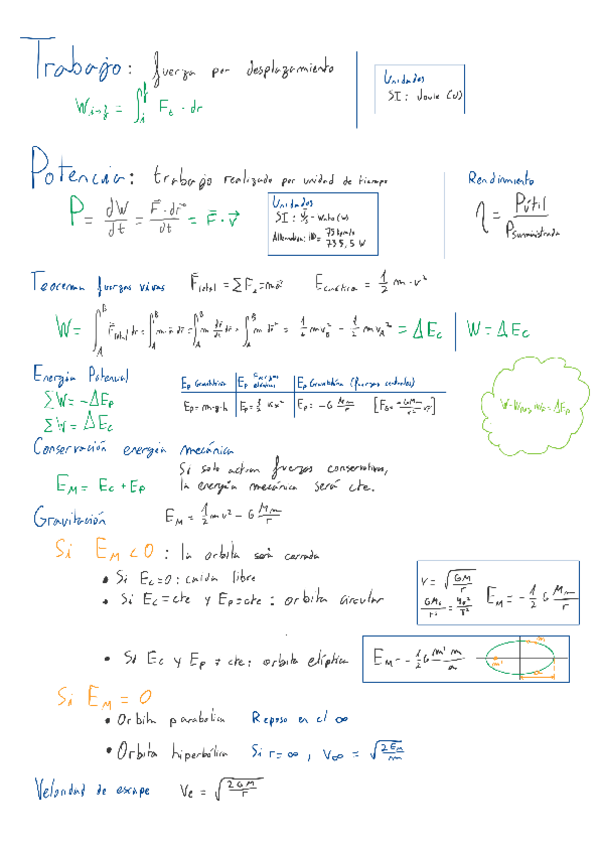 Trabajo: fuerza por desplazamiento
W i→f = ∫ᵢᶠ Fₜ · dr
Unidades
SI: Joule (J)
Potencia: trabajo realizado por unidad de tiempo
P = dW/dt = F⃗·dr⃗/dt = F⃗ · v⃗
Unidades
SI: J/s = Watio (W)
735,5 W
Rendimiento
η = Pútil / Psuministrada
Teorema fuerzas vivas F⃗total = ΣF = m·a⃗ Ecinética = 1/2 m · v²
= 1/2 m v_B² - 1/2 m v_A² = ΔEc | W = ΔEc
Energía Potencial
ΣW = -ΔEp
ΣW = ΔEc
Ep Gravitatoria | Ep | Ep Gravitatoria (fuerzas centrales)
Ep = m·g·h | Ep = 1/2 k x² | Ep = -G Mm/r
Conservación energía mecánica
Si solo actúan fuerzas conservativas,
EM = Ec + Ep
la energía mecánica será cte.
Gravitación EM = 1/2 m v² - G Mm/r
Si EM < 0: la orbita será cerrada
• Si Ec = 0: caida libre
• Si Ec = cte y Ep = cte: orbita circular
v = √(GM/r)
EM = -1/2 G Mm/r
• Si Ec y Ep ≠ cte: orbita elíptica
EM = -1/2 G m' m/a
Si EM = 0
• Orbita parabólica Reposo en el ∞
• Orbita hiperbólica Si r = ∞, v∞ = √(2EM/m)
Velocidad de escape Ve = √(2GM/r)